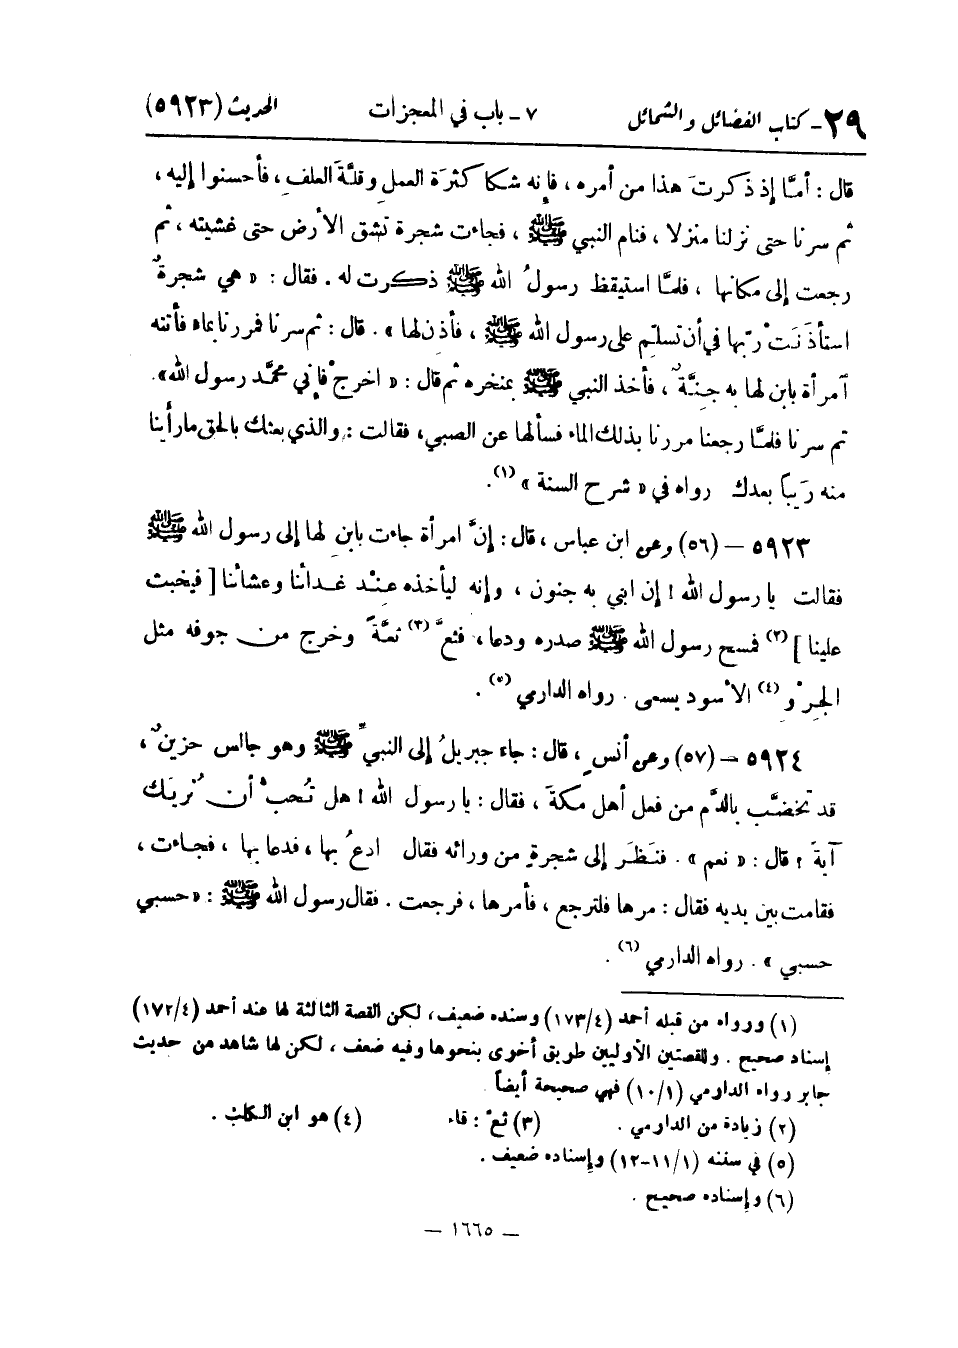 ٢٩ ـ كتاب الفضائل والشمائل ٧ ـ باب في المعجزات الحديث (٥٩٢٣)
قال : أمَّا إذ ذكرتَ هذا من أمره ، فإنه شكا كثرَة العملِ وقلَّةَ العلفِ ، فأحسنوا إليه ،
ثم سرنا حتى نزلنا منزلا ، فنام النبي ﷺ ، فجاءت شجرة تشق الأرض حتى غشيته ، ثم
رجعت إلى مكانها ، فلمَّا استيقظ رسولُ الله ﷺ ذكرت له . فقال : « هي شجرةٌ
استأذنَتْ ربّها في أن تسلّم على رسول الله ﷺ ، فأذن لها » . قال : ثم سرنا فمررنا بماء فأتته
امرأة بابن لها به جِنَّةٌ ، فأخذ النبي ﷺ بمنخره ثم قال : « اخرجْ فإني محمَّد رسول الله» .
ثم سرنا فلمَّا رجعنا مررنا بذلك الماء فسألها عن الصبي ، فقالت : والذي بعثك بالحق ما رأينا
منه رَيباً بعدك رواه في « شرح السنة » (١) .
٥٩٢٣ – (٥٦) وعن ابن عباس ، قال : إنَّ امرأة جاءت بابنٍ لها إلى رسول الله ﷺ
فقالت يا رسول الله ! إن ابني به جنون ، وإنه ليأخذه عِنْد غدائنا وعشائنا [ فيخبث
علينا ] (٢) فمسح رسول الله ﷺ صدره ودعا ، فثعَّ (٣) ثعَّةً وخرج من جوفه مثل
الجِرْوِ (٤) الأسود يسعى . رواه الدارمي (٥) .
٥٩٢٤ – (٥٧) وعن أنسٍ ، قال : جاء جبريلُ إلى النبيِّ ﷺ وهو جالس حزينٌ ،
قد تخضَّب بالدَّم من فعل أهل مكةَ ، فقال : يا رسول الله ! هل تُحبْ أن نُريَك
آيةً ؟ قال : « نعم » . فنَظَرَ إلى شجرةٍ من ورائه فقال ادعُ بها ، فدعا بها ، فجاءت ،
فقامت بين يديه فقال : مرها فلترجع ، فأمرها ، فرجعت . فقال رسول الله ﷺ : « حسبي
حسبي » . رواه الدارمي (٦) .
(١) ورواه من قبله أحمد (١٧٣/٤) وسنده ضعيف ، لكن القصة الثالثة لها عند أحمد (١٧٢/٤)
إسناد صحيح . وللقصتين الأوليين طريق أخرى بنحوها وفيه ضعف ، لكن لها شاهد من حديث
جابر رواه الدارمي (١٠/١) فهي صحيحة أيضاً .
(٢) زيادة من الدارمي . (٣) ثعّ : قاء (٤) هو ابن الكلب .
(٥) في سننه (١١/١-١٢) وإسناده ضعيف .
(٦) وإسناده صحيح .
– ١٦٦٥ –